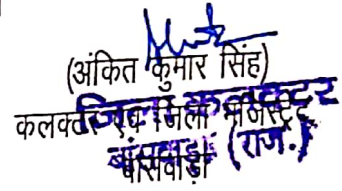 (अंकित कुमार सिंह)
कलक्टर एवं जिला मजिस्ट्रेट
जिला कलक्टर
बांसवाड़ा
बांसवाड़ा (राज.)